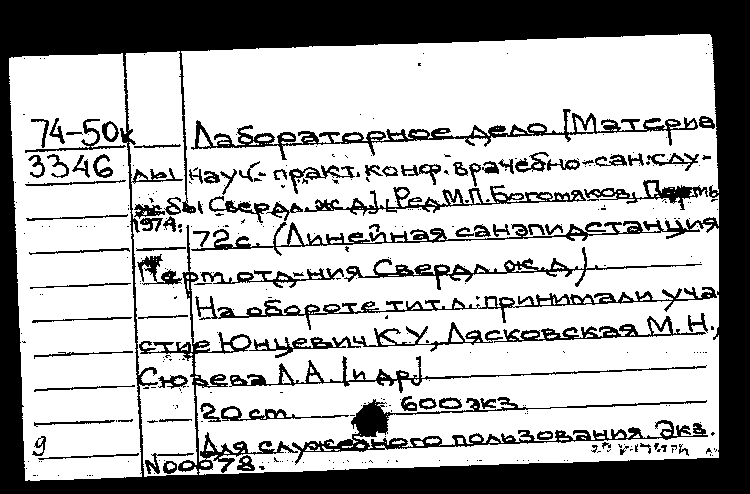 74-50к Лабораторное дело. [Материа
3346 лы науч.-практ. конф. врачебно-сан. слу-
жбы Свердл. ж. д.]. [Ред. М.П. Богомяков], Пермь
1974.
72с. (Линейная санэпидстанция
Перм. отд-ния Свердл. ж. д.).
На обороте тит. л.: принимали уча
стие Юнцевич К.У., Лясковская М.Н.,
Сюзева Л.А. [и др]
20 ст. 600 экз
9 Для служебного пользования. Экз.
N00078.